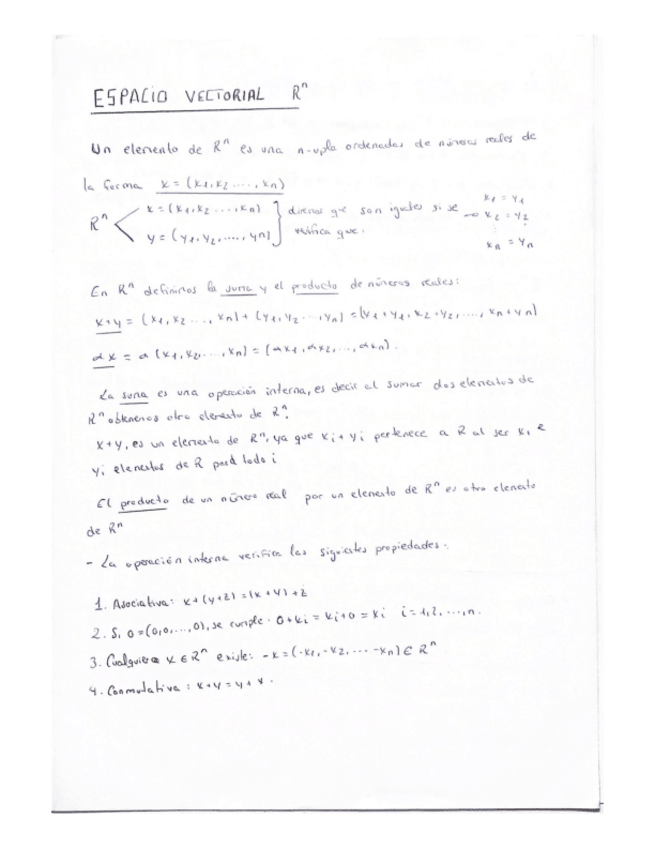 ESPACIO VECTORIAL Rⁿ
Un elemento de Rⁿ es una n-upla ordenadas de números reales de
la forma x = (x1, x2 ...., xn)
Rⁿ < x = (x1, x2 ...., xn) y = (y1, y2, ....., yn) ] diremos que son iguales si se verifica que: → x1 = y1 x2 = y2 ⋮ xn = yn
En Rⁿ definimos la suma y el producto de números reales:
x+y = (x1, x2 ..., xn) + (y1, y2 ..., yn) = (x1+y1, x2+y2, ...., xn+yn)
αx = α (x1, x2, ..., xn) = (αx1, αx2, ..., αxn).
La suma es una operación interna, es decir al sumar dos elementos de
Rⁿ obtenemos otro elemento de Rⁿ.
x+y, es un elemento de Rⁿ, ya que xi + yi pertenece a R al ser xi e
yi elementos de R para todo i
El producto de un número real por un elemento de Rⁿ es otro elemento
de Rⁿ
- La operación interna verifica las siguientes propiedades:
1. Asociativa: x+(y+z) = (x+y)+z
2. Si 0=(0,0,...,0), se cumple: 0+xi = xi+0 = xi i=1,2, ...., n.
3. Cualquiera x ∈ Rⁿ existe: -x = (-x1, -x2, ... -xn) ∈ Rⁿ
4. Conmutativa: x+y = y+x.